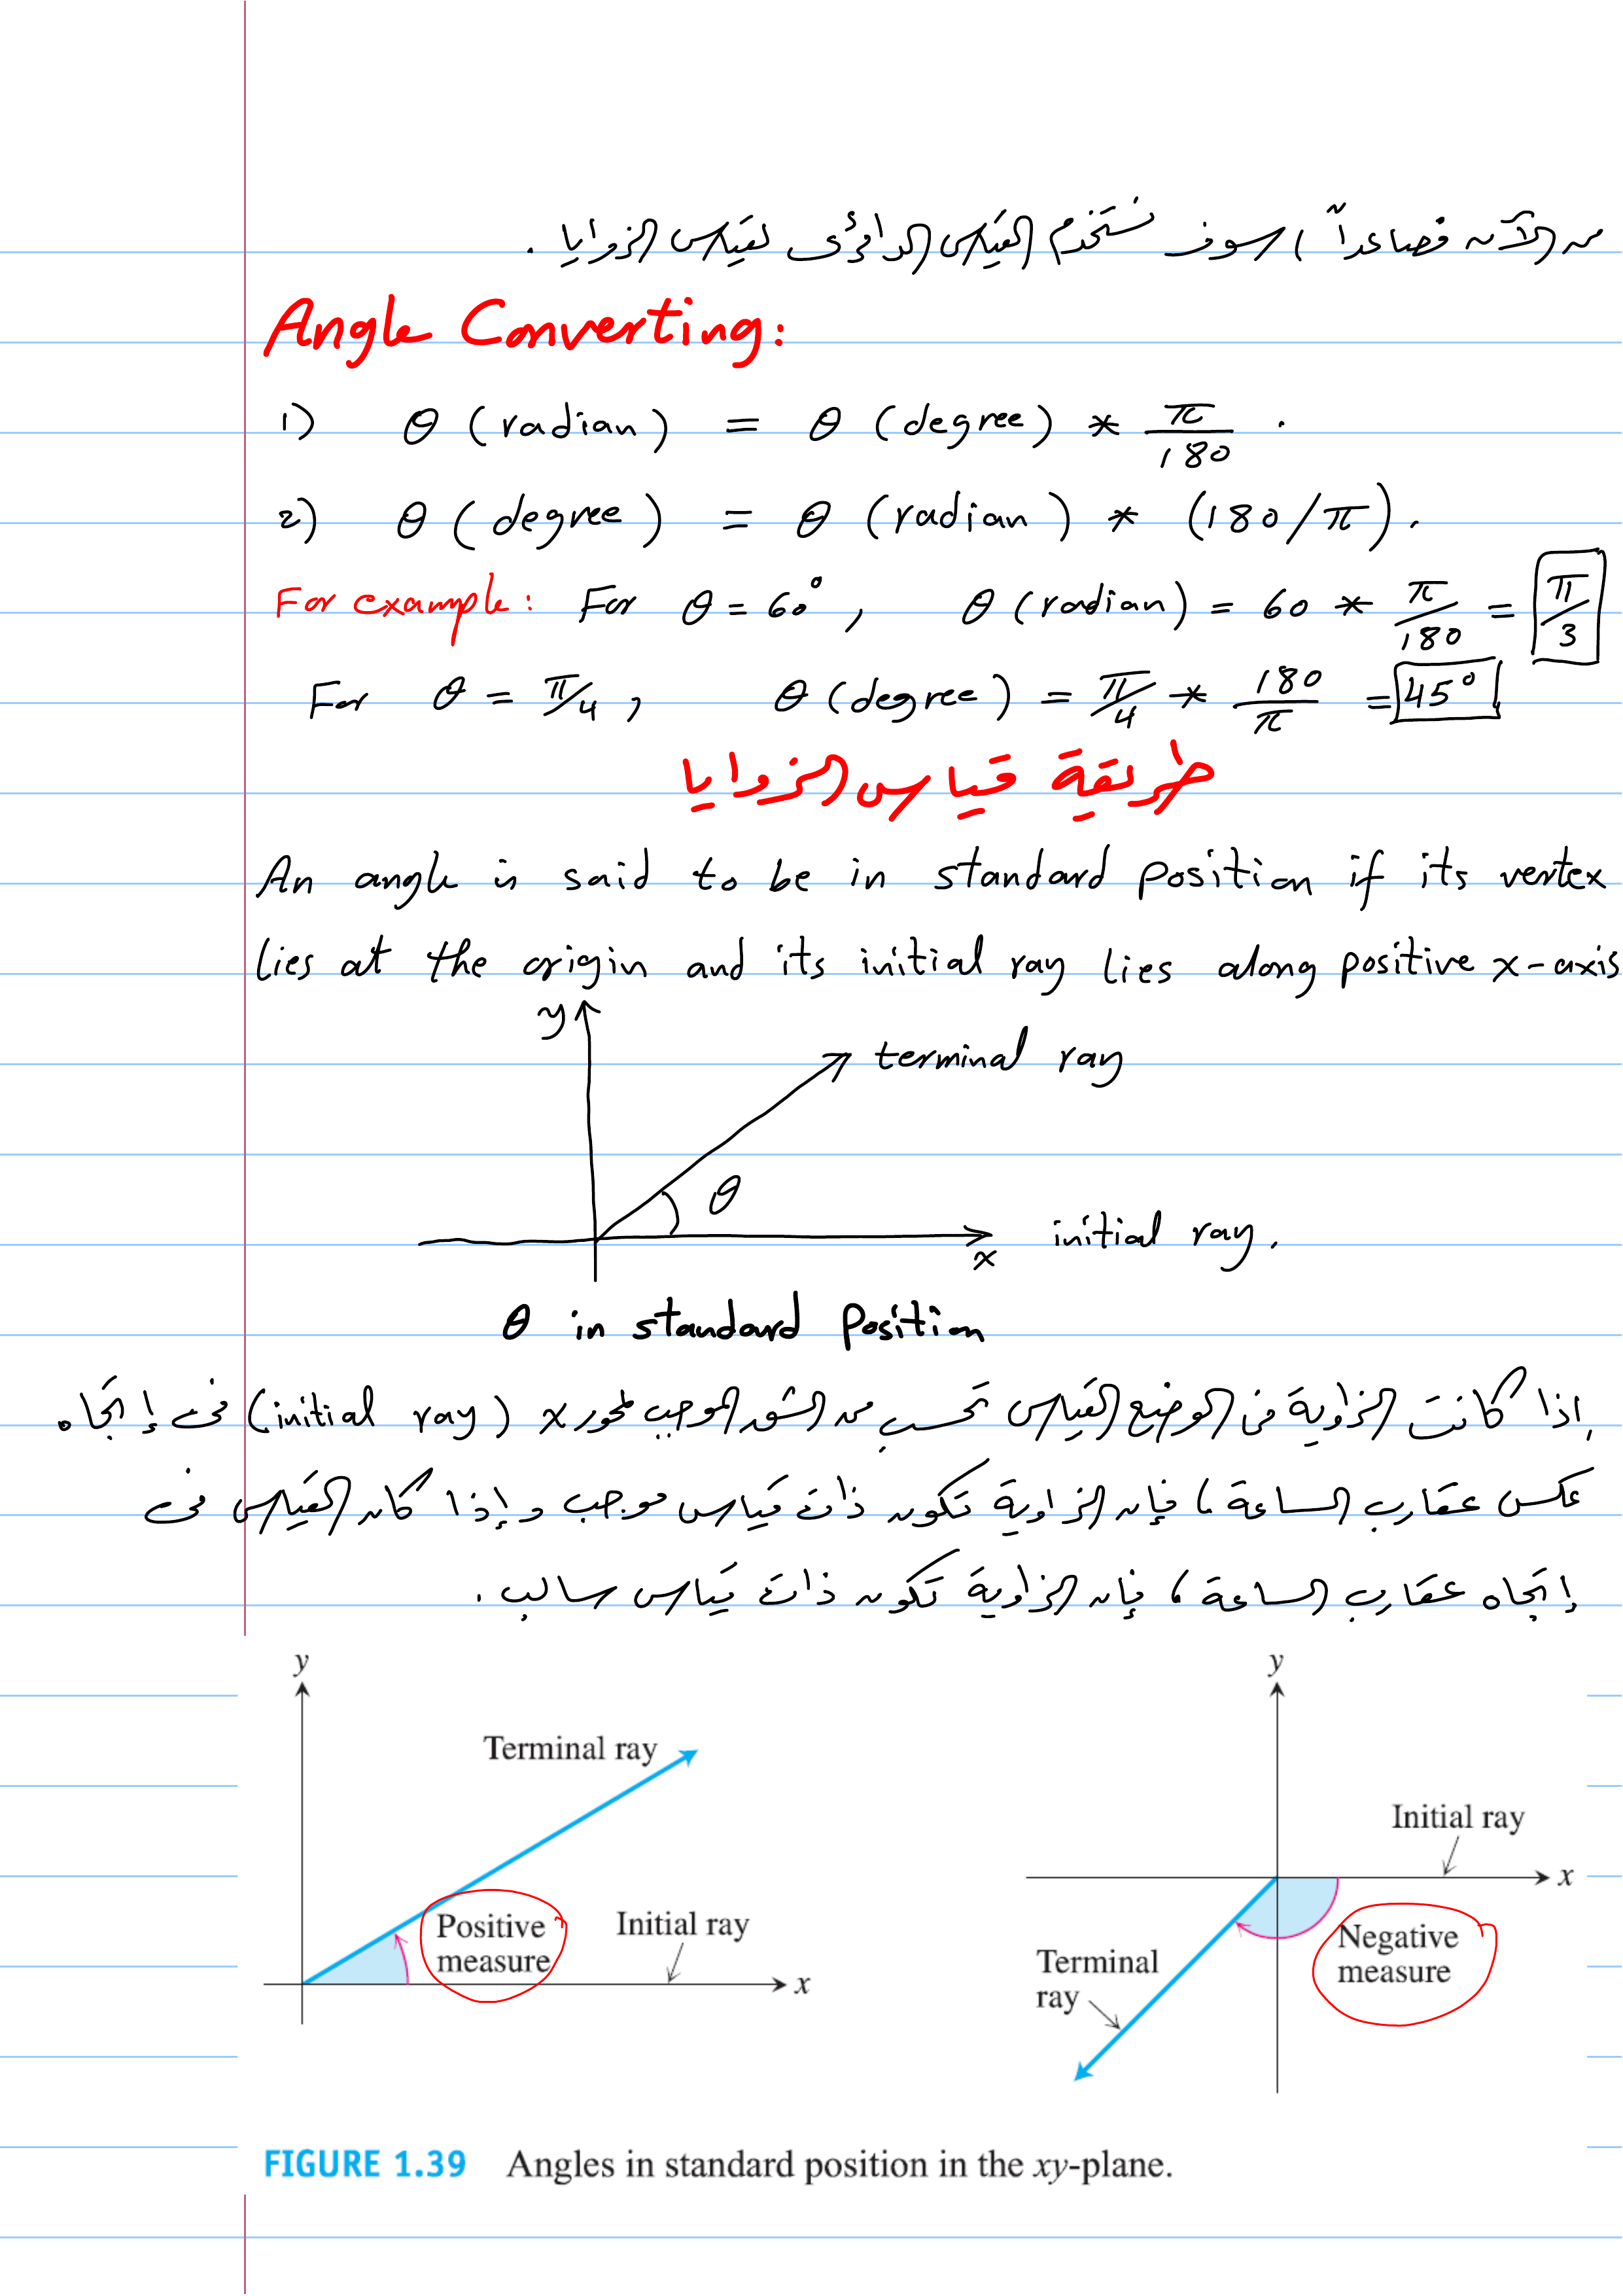 من الآن فصاعداً، سوف نستخدم القياس الدائرى لقياس الزوايا.
Angle Converting:
1) θ (radian) = θ (degree) * π/180 .
2) θ (degree) = θ (radian) * (180/π).
For example: For θ = 60°, θ (radian) = 60 * π/180 = π/3
For θ = π/4, θ (degree) = π/4 * 180/π = 45°
طريقة قياس الزوايا
An angle is said to be in standard position if its vertex
lies at the origin and its initial ray lies along positive x-axis
y
terminal ray
θ
x
initial ray.
θ in standard position
إذا كانت الزاوية فى الوضع القياس تحسب من الشق الموجب لمحور x (initial ray) فى إتجاه
عكس عقارب الساعة، فإن الزاوية تكون ذات قياس موجب وإذا كان القياس فى
إتجاه عقارب الساعة، فإن الزاوية تكون ذات قياس سالب.
y
Terminal ray
Positive
measure
Initial ray
x
y
Initial ray
x
Negative
measure
Terminal
ray
FIGURE 1.39 Angles in standard position in the xy-plane.